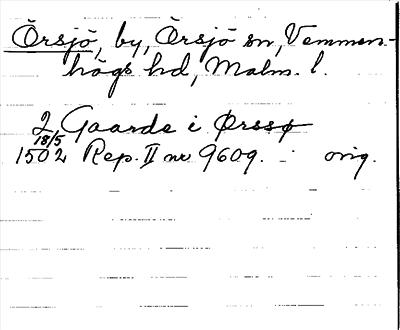 Örsjö, by, Örsjö sn, Vemmen-
högs hd, Malm. l.
2 Gaarde i Ørssø
18/5
1502 Rep. II nr 9609. - orig.